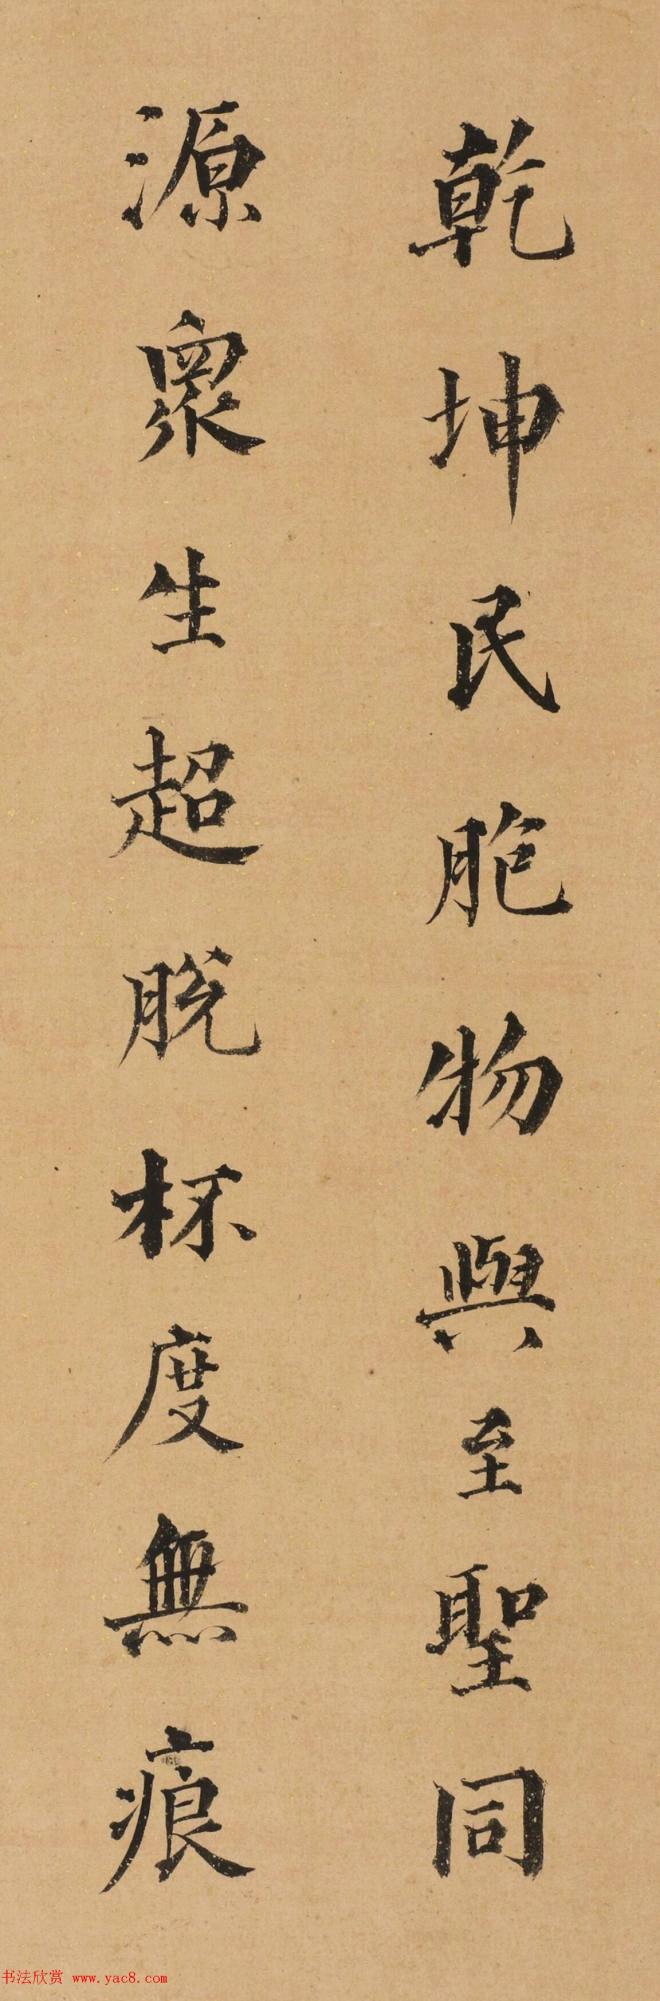 乾坤民胞物與至聖同
源眾生超脫杯度無痕
书法欣赏 www.yac8.com